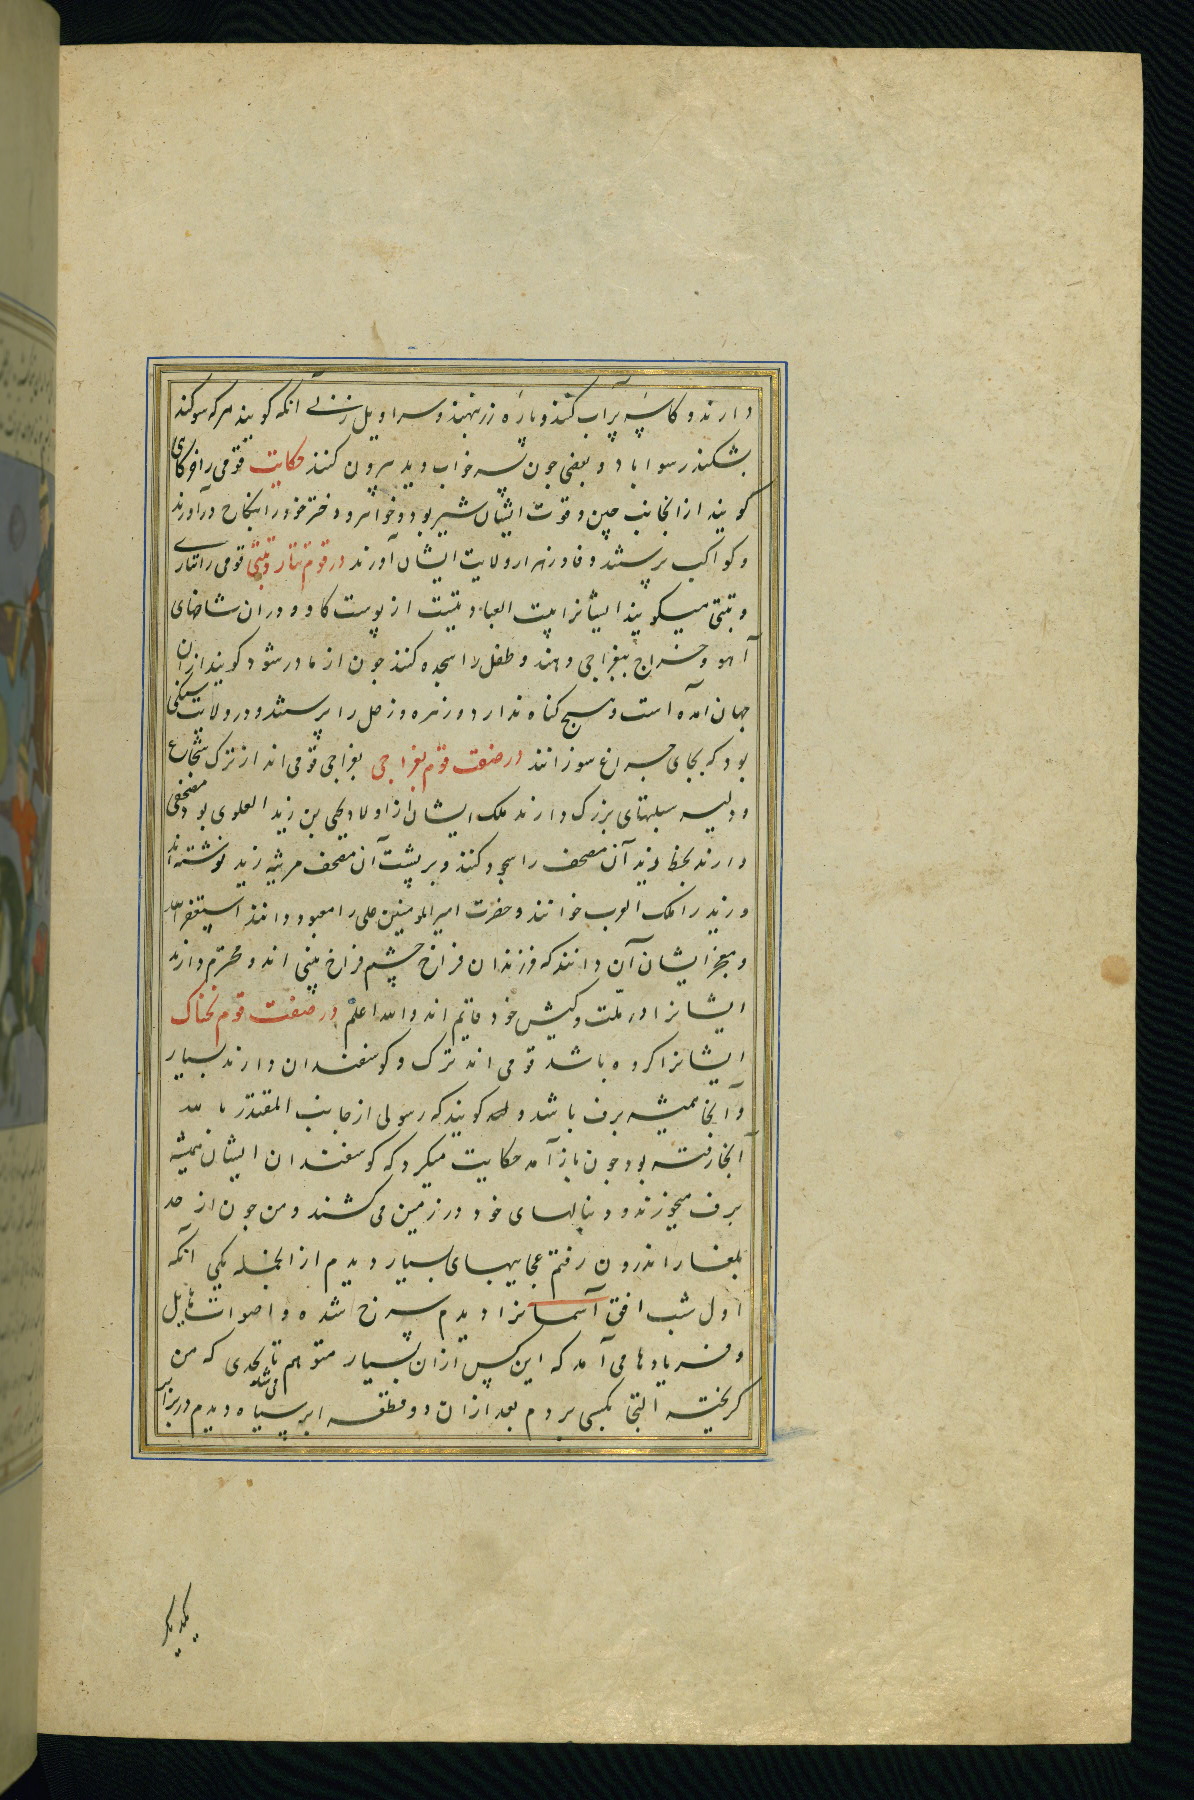 دارند و کاسهٔ پر آب کنند و پارهٔ زر نهند و سراویل زنی آنکه گویند هرکه سوکند
بشکند رسوا باد و بعضی چون پسر خواب دید بیرون کنند حکایت قومی را
گویند از انجانب چین و قوت ایشان شیر بود و خواهر و دختر خود را بنکاح درآورند
و کواکب پرستند و فادزهر از ولایت ایشان آورند در قوم تتار و تبتی قومی را تتاری
و تبتی میگویند ایشانرا از پوست کاو و دران شاخهای
آهو و خراج ببغراجی دهند و طفل را سجده کنند چون از مادر شود گویند ازان
جهان آمده است و هیچ کناه ندارد و زهره و زحل را پرستند و در ولایت سنکی
بود که بجای چراغ سوزانند در صفت قوم بغراجی بغراجی قومی اند از ترک شجاع
و دلیر سبلتهای بزرک دارند ملک ایشان از اولاد یحیی بن زید العلوی بود مصحفی
دارند بخط زید آن مصحف را سجود کنند و بر پشت آن مصحف مرثیه زید نوشته اند
و زید را ملک العرب خوانند و حضرت امیر المومنین علی را معبود دانند استغفر الله
و معجز ایشان آن دانند که فرزندان فراخ چشم فراخ بینی اند و محترم دارند
ایشانرا در ملّت و کیش خود قایم اند والله اعلم در صفت قوم
ایشانرا کروه باشد قومی اند ترک و کوسفندان دارند بسیار
و آنجا همیشه برف باشد و گویند که رسولی از جانب المقتدر بالله
آنجا رفته بود چون باز آمد حکایت میکرد که کوسفندان ایشان همیشه
برف میخورند و دنبالهای خود در زمین می کشند و من چون از حد
بلغار اندرون رفتم عجایبهای بسیار دیدم از الجمله یکی آنکه
اول شب افق آسمانرا دیدم سرخ شده و اصوات هایل
و فریادها می آمد که این کس ازان بسیار متوهم می شد تا بحدی که من
کریخته التجا بکسی بردم بعد ازان دو قطعه ابر سیاه دیدم در برابر
یکدیکر